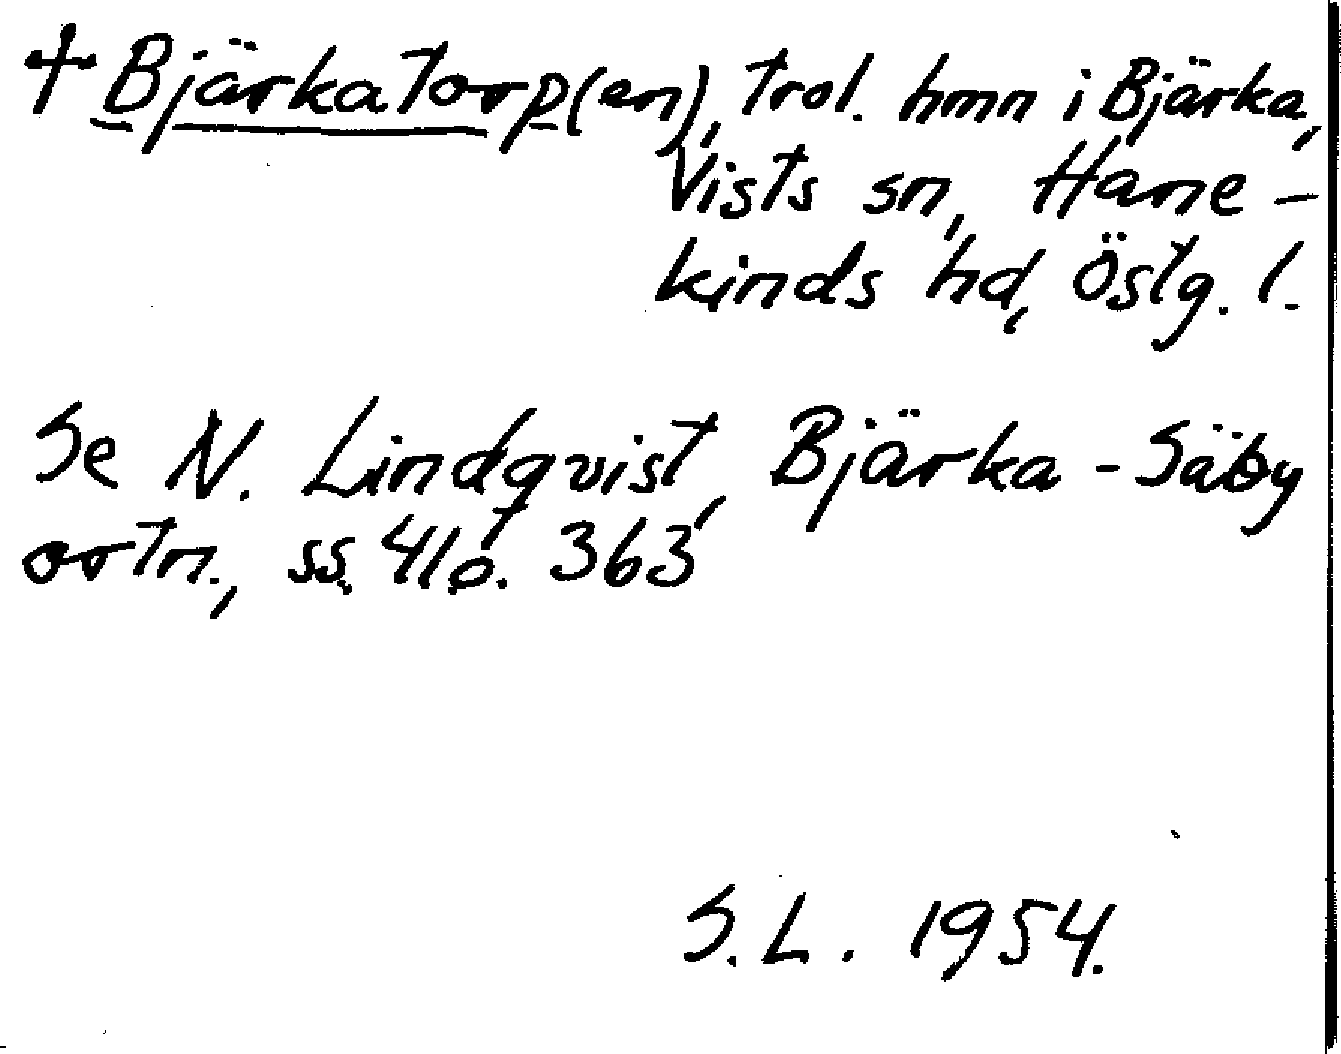 † Bjärkatorp(en), trol. hmn i Bjärka,
Vists sn, Hane-
kinds hd, Östg. l.
Se N. Lindqvist, Bjärka-Säby
ortn., ss. 41 o. 363
S.L. 1954.